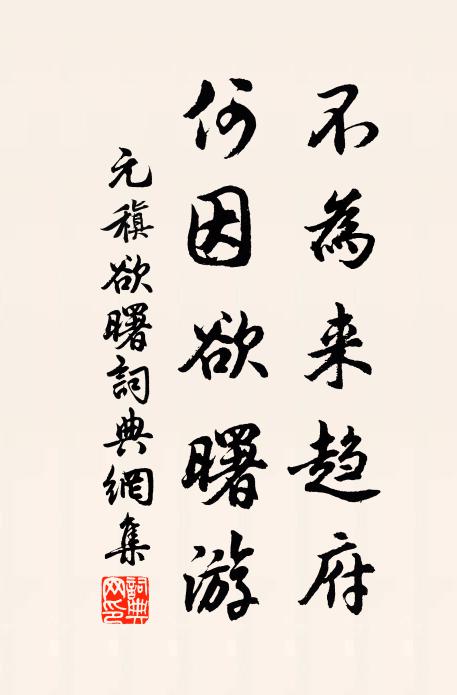 不為来趋府
何因欲曙游
元稹欲曙詞典網集
詞典网印